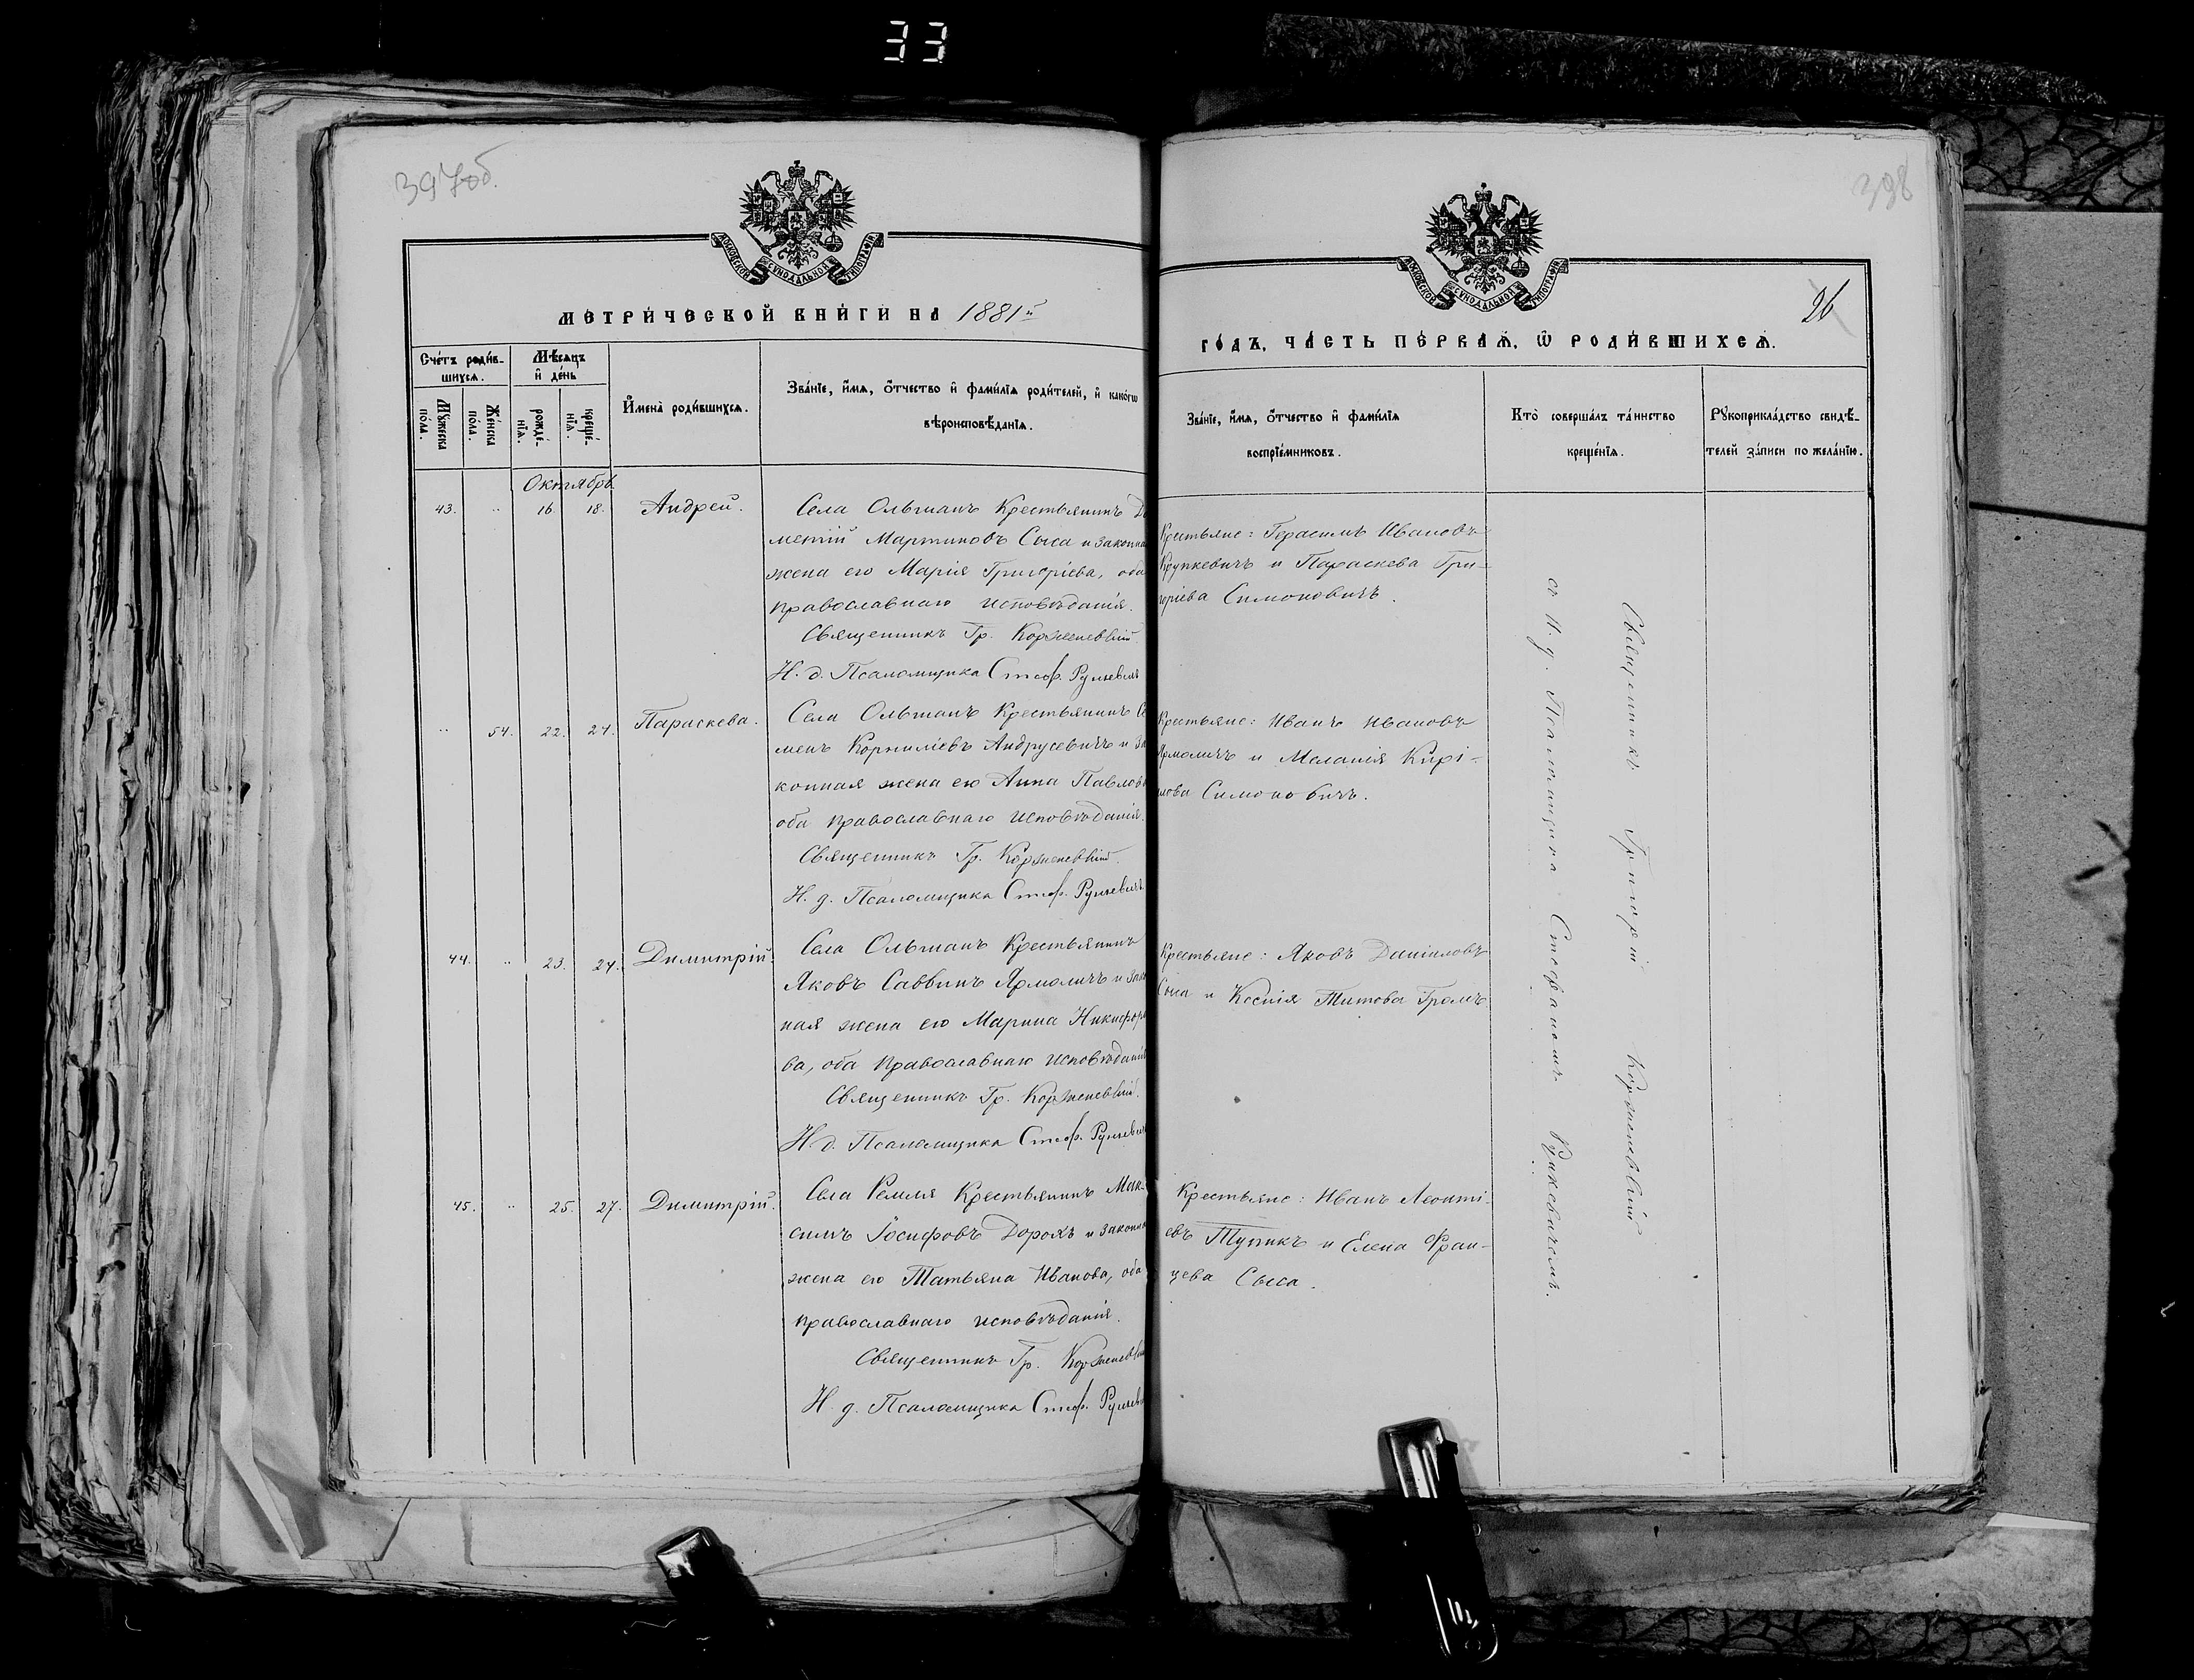 33
397об.
398
МОСКОВСКОЙ СѴНОДАЛЬНОЙ ТИПОГРАФІИ
МОСКОВСКОЙ СѴНОДАЛЬНОЙ ТИПОГРАФІИ
26
МЕТРИ́ЧЕСКОЙ КНИ́ГИ НА 1881й
ГО́ДЪ, ЧА́СТЬ ПЕ́РВАѦ, Ѡ҆ РОДИ́ВШИХСѦ.
Сче́тъ роди́в-
шихсѧ.
Мѣ́сѧцъ
и҆ де́нь
Мꙋ́жеска
по́ла.
Же́нска
по́ла.
рожде́-
нїѧ.
креще́-
нїѧ.
И҆мена̀ роди́вшихсѧ.
Зва́нїе, и҆́мѧ, ѻ҆́тчество и҆ фами́лїѧ роди́телей, и҆ како́гѡ
вѣроисповѣ́данїѧ.
Зва́нїе, и҆́мѧ, ѻ҆́тчество и҆ фами́лїѧ
воспрїе́мниковъ.
Кто̀ соверша́лъ та́инство
креще́нїѧ.
Рꙋкоприкла́дство свидѣ́-
телей за́писи по жела́нїю.
Октябрь
43. " 16. 18. Андрей.
Села Ольманъ Крестьянинъ
метій Мартиновъ Сыса и законна
жена его Марія Григоріева, оба
православнаго исповѣданія.
Священникъ Гр. Корженевскій.
И. д. Псаломщика Стеф. Рункевичъ
Крестьяне: Герасимъ Ивановъ
Крупкевичъ и Параскева Гри-
горіева Симоновичъ.
" 54. 22. 24. Параскева.
Села Ольманъ Крестьянинъ Се
менъ Корниліевъ Андрусевичъ и за
конная жена его Анна Павлов
оба православнаго исповѣданія.
Священникъ Гр. Корженевскій.
И. д. Псаломщика Стеф. Рункевичъ
Крестьяне: Иванъ Ивановъ
Ярмоличъ и Меланія Кирі-
лова Симоновичъ.
44. " 23. 24. Димитрій.
Села Ольманъ Крестьянинъ
Яковъ Саввинъ Ярмоличъ и зако
ная жена его Марина Никифоро
ва, оба православнаго исповѣданія
Священникъ Гр. Корженевскій.
И. д. Псаломщика Стеф. Рункевичъ
Крестьяне: Яковъ Даніиловъ
Сыса и Ксенія Титова Громъ
45. " 25. 27. Димитрій.
Села Ремля Крестьянинъ Мак-
симъ Іосифовъ Дорохъ и законна
жена его Татьяна Иванова, оба
православнаго исповѣданія.
Священникъ Гр. Корженевскій
И. д. Псаломщика Стеф. Рункев
Крестьяне: Иванъ Леонті-
евъ Тупикъ и Елена Фран-
цева Сыса.
Священникъ Григорій Корженевскій
съ И. д. Псаломщика Стефаномъ Рункевичемъ.